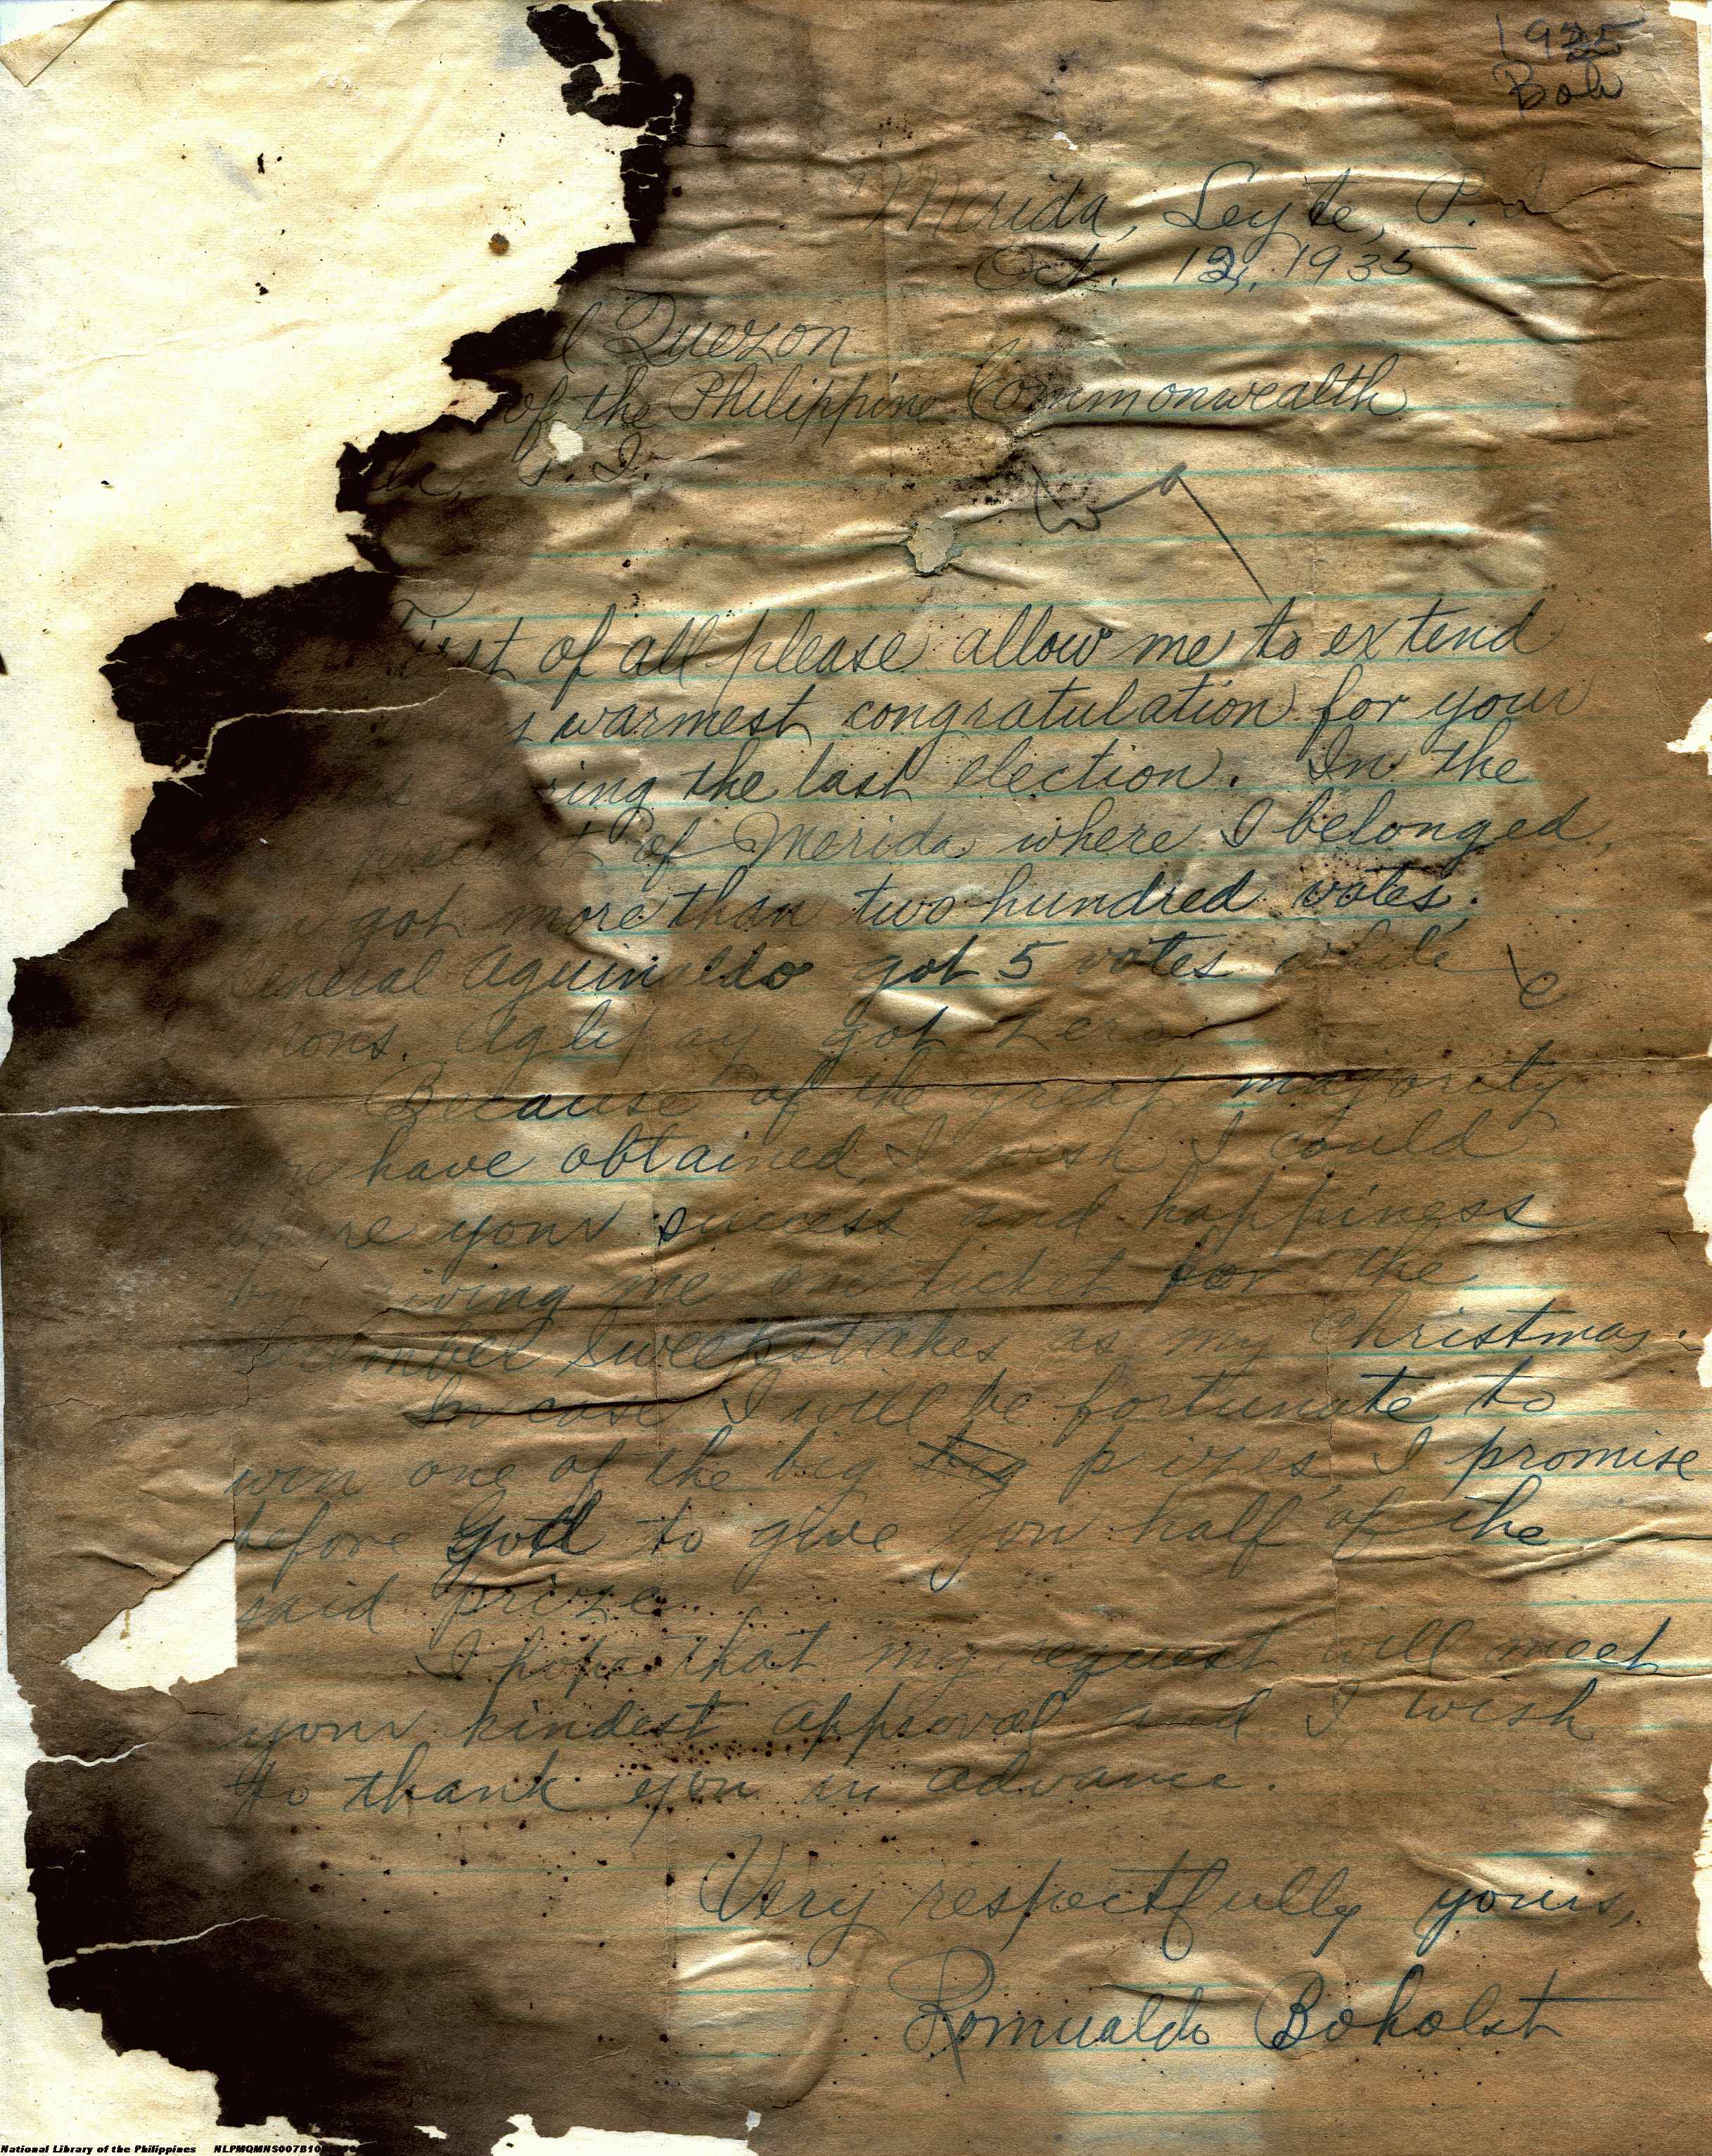 1935
Boh
Merida, Leyte, P. I.
Oct. 12, 1935
l Quezon
of the Philippine Commonwealth
la, P. I.
First of all please allow me to extend
warmest congratulation for your
ring the last election. In the
precinct of Merida where I belonged,
got more than two hundred votes;
General Aguinaldo got 5 votes while
Mons. Aglipay got zero
Because of the great majority
you have obtained, I wish I could
share your success and happiness
by giving me one ticket for the
December Sweepstakes as my Christmas.
In case I will be fortunate to
win one of the big prizes, I promise
before God to give you half of the
said prize.
I hope that my request will meet
your kindest approval and I wish
to thank you in advance.
Very respectfully yours,
Romualdo Boholst
National Library of the Philippines